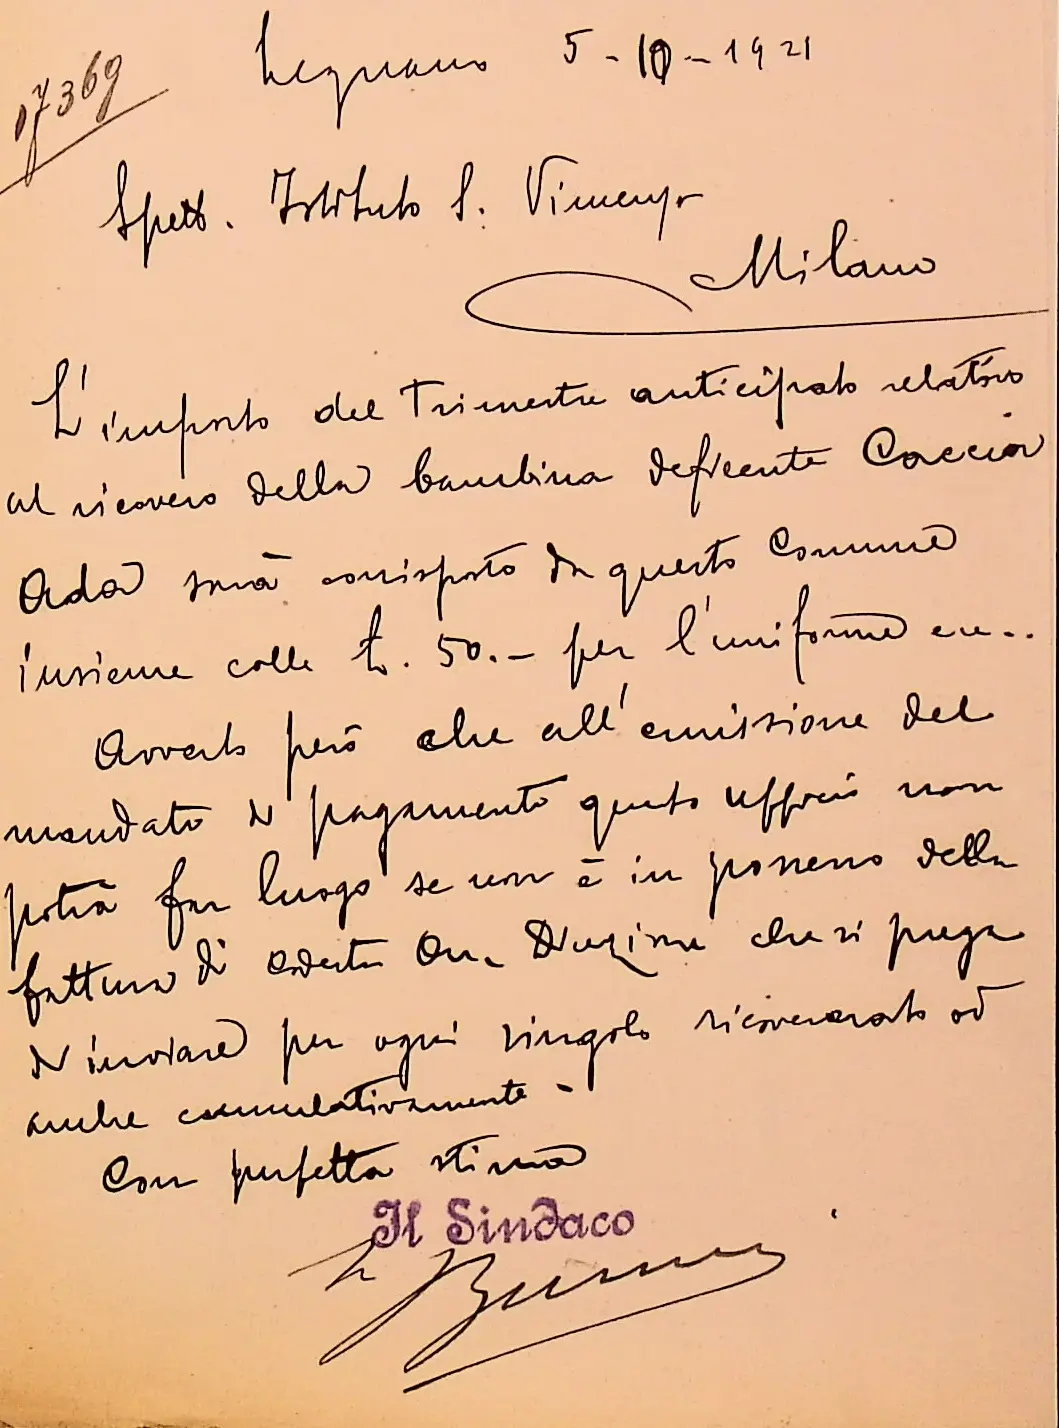 17369
Legnano 5-10-1921
Spett. Istituto S. Vincenzo
Milano
L'importo del Trimestre anticipato relativo
al ricovero della bambina deficente Caccia
Ada sarà corrisposto da questo Comune
insieme colle L. 50.- per l'uniforme ecc..
Avverto però che all'emissione del
mandato di pagamento questo ufficio non
potrà far luogo se non è in possesso della
fattura di codesta On. Direzione che si prega
di inviare per ogni singolo ricoverato od
anche cumulativamente -
Con perfetta stima
Il Sindaco